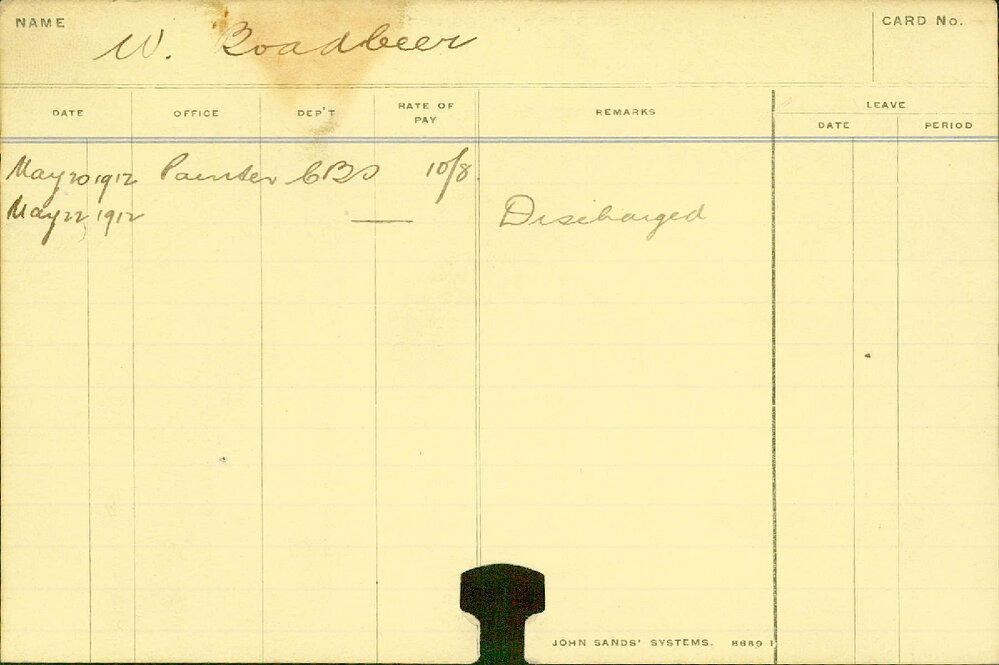 NAME W. Boadbeer CARD No.
DATE OFFICE DEP'T RATE OF PAY REMARKS LEAVE
DATE PERIOD
May 20 1912 Painter CBS 10/8
May 22, 1912 — Discharged
JOHN SANDS' SYSTEMS. 8689 1